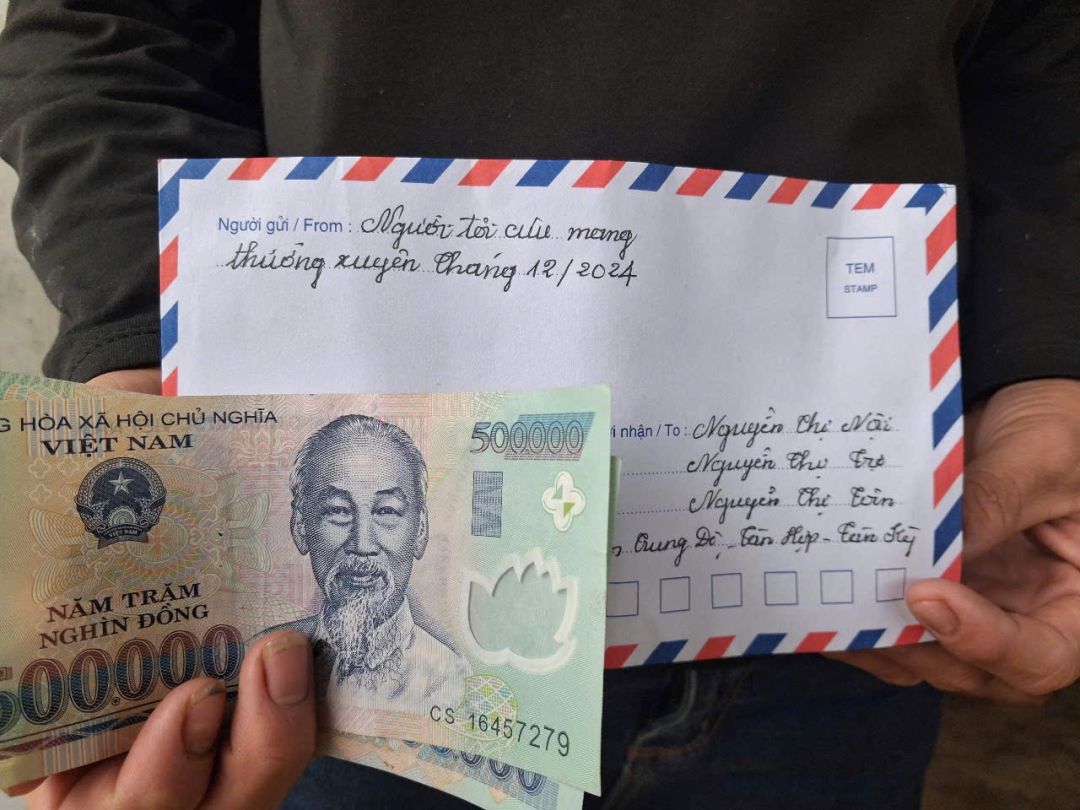 Người gửi / From : Người tôi cưu mang
thường xuyên tháng 12/2024
TEM
STAMP
nhận / To : Nguyễn Thị
Nguyễn Thị
Nguyễn Thị
Trung Độ - Tân Hợp - Tân Kỳ
HÒA XÃ HỘI CHỦ NGHĨA
VIỆT NAM
500.000
NĂM TRĂM
NGHÌN ĐỒNG
500.000
CS 16457279